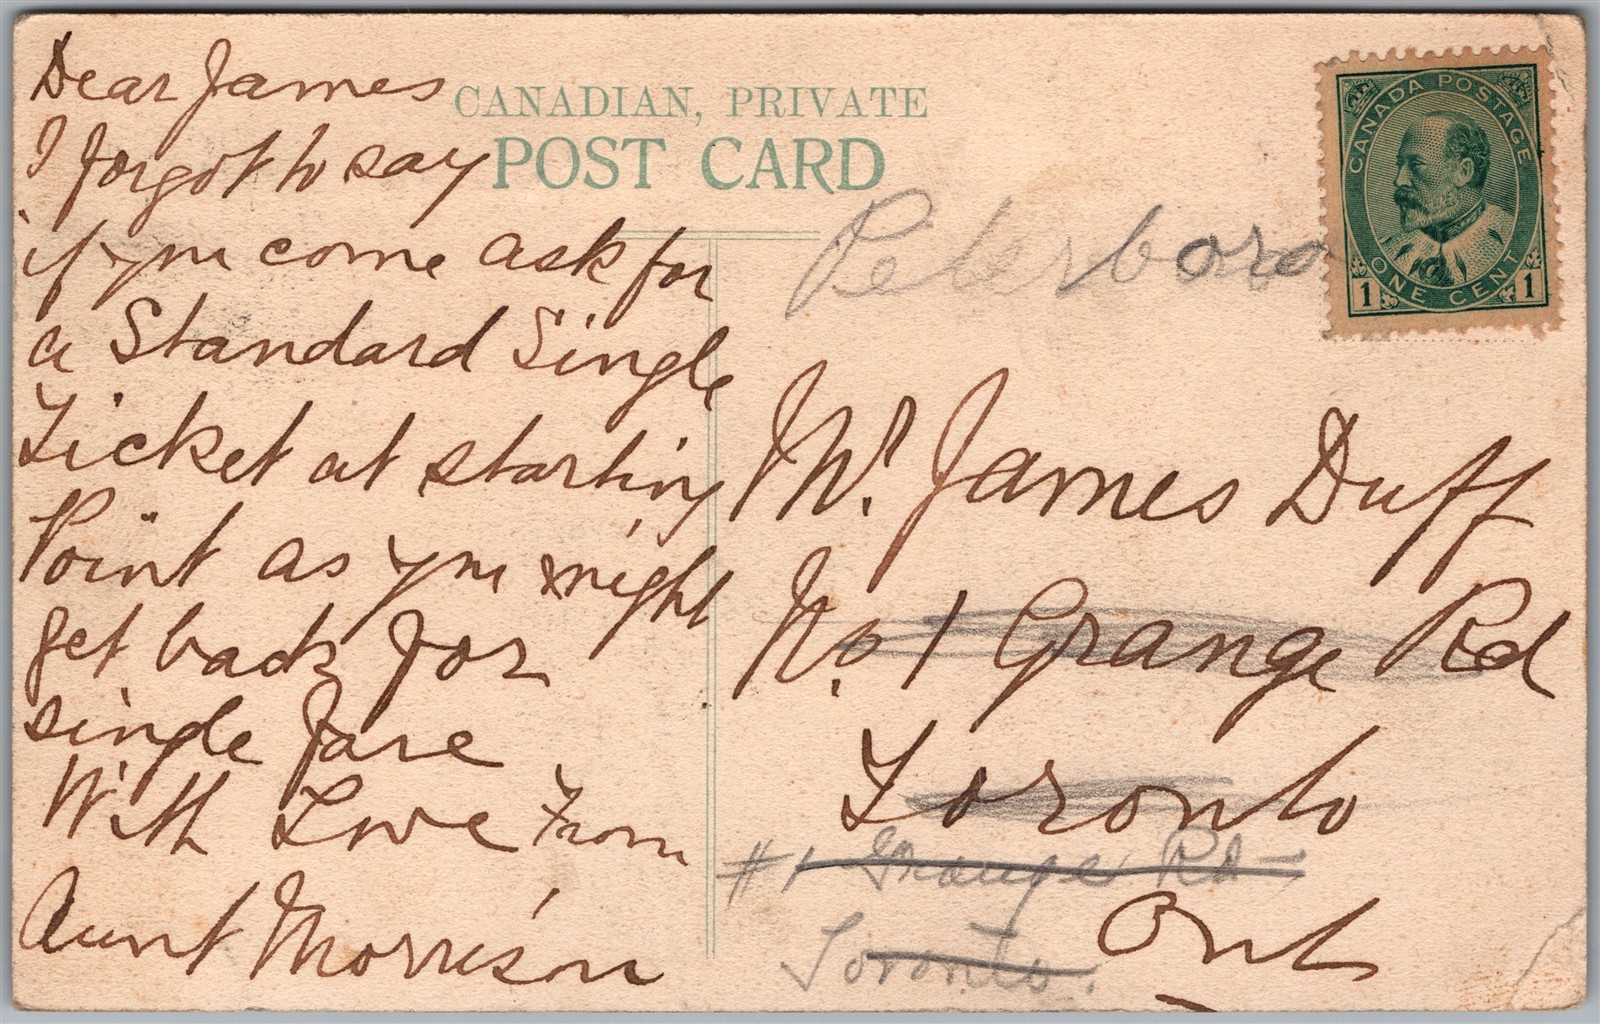 Dear James
I forgot to say
if you come ask for
a Standard Single
Ticket at starting
Point as you might
get back for
single fare
With Love From
Aunt Morrison
CANADIAN, PRIVATE
POST CARD
CANADA POSTAGE
1 ONE CENT 1
Peterboro
Mr. James Duff
No. 1 Grange Rd
Toronto
#1 Grange Rd
Ont
Toronto.